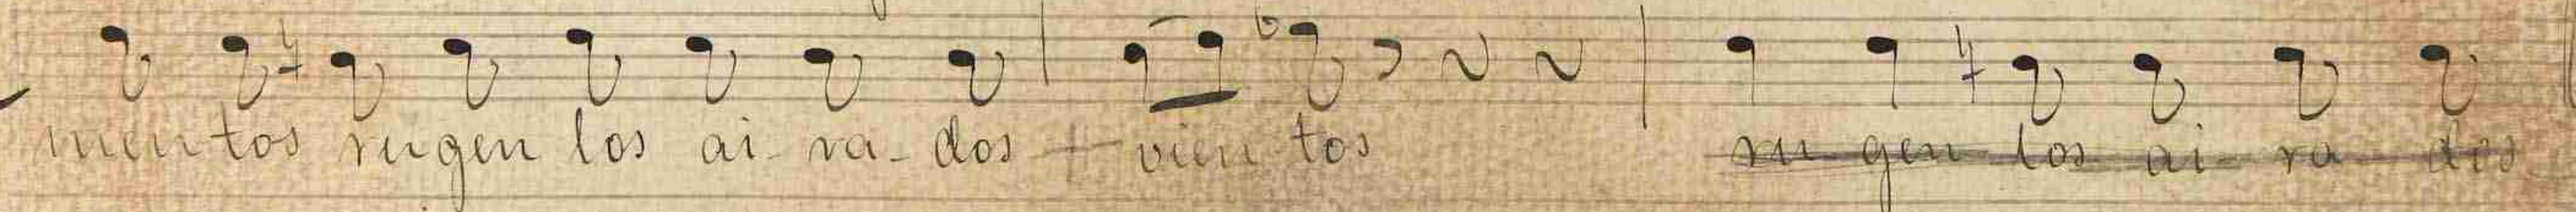 mentos rugen los ai- ra- dos vien tos ru gen los ai- ra dos